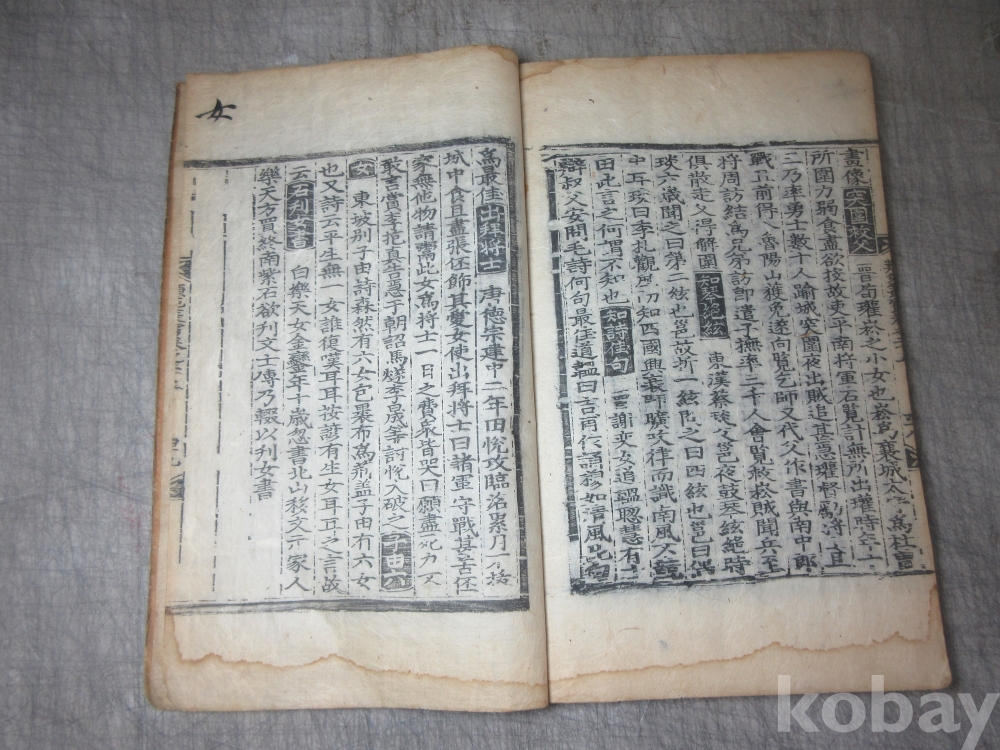 畫像 突圍救父 晉荀灌崧之小女也崧爲襄城太守爲杜曾
所圍力弱食盡欲投故吏平南將軍石覽計無所出瓘時年十
二乃率勇士數十人踰城突圍夜出賊追甚急瓘督厲將士且
戰且前得入魯陽山獲免遂向覽乞師又代父作書與南中郎
將周訪結爲兄弟訪卽遣子撫率三千人會覽救崧賊聞兵至
俱散走父得解圍 知琴絶絃 東漢蔡琰父邕夜鼓琴絃絶時
琰六歲聞之曰第一絃也邕故折一絃問之曰四絃也邕曰偶
中耳琰曰季札觀風知四國興衰師曠吹律而識南風不競
由此言之何謂不知也 知詩佳句 晉謝奕女道韞聰慧有
辯叔父安問毛詩何句最佳道韞曰吉甫作誦穆如淸風此句
爲最佳 出拜將士 唐德宗建中二年田悅攻臨洺累月不拔
城中食且盡張伾飾其愛女使出拜將士曰諸軍守戰甚苦伾
家無他物請鬻此女爲將士一日之費衆皆哭曰願盡死力不
敢言賞李抱眞告急于朝詔馬燧李晟等討悅入破之 子由六
女 東坡別子由詩森然有六女包裹布爲荊盖子由有六女
也又詩云平生無一女誰復嘆耳耳按諺有生女耳耳之言故
云云 刋女書 白樂天女金鑾年十歲忽書北山移文示家人
樂天方買終南紫石欲刋文士傳乃輟以刋女書
女
kobay